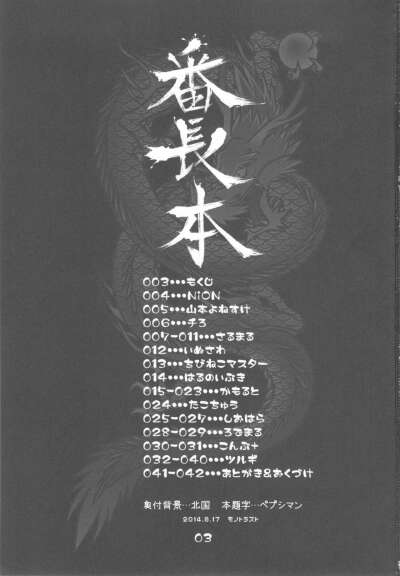 番長本
003•••もくじ
004•••NiON
005•••山本よねすけ
006•••チろ
007-011•••さるまる
012•••いめさわ
013•••ちびねこマスター
014•••はるのいぶき
015-023•••かもると
024•••たこちゅう
025-027•••しおはら
028-029•••ろでまる
030-031•••こんぶ+
032-040•••ツルギ
041-042•••あとがき&おくづけ
奥付背景…北国　本題字…ペプシマン
2014.8.17　モノトラスト
03